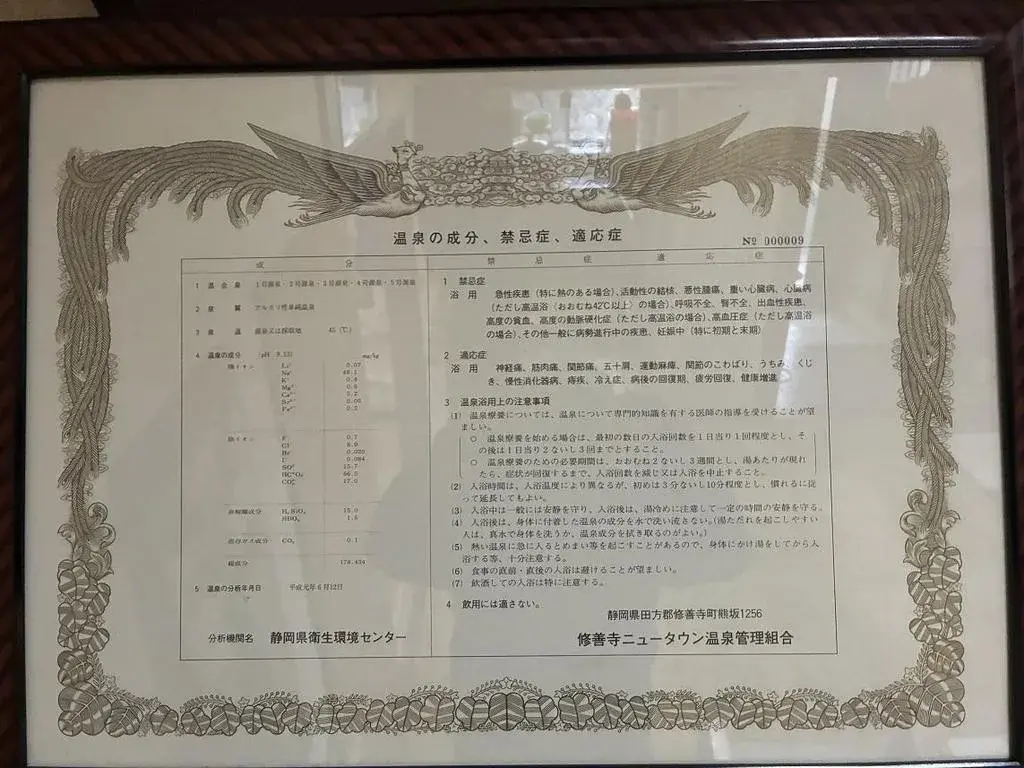 温泉の成分、禁忌症、適応症
№ 000009
成 分
禁 忌 症 適 応 症
1 温 泉 1号源泉・2号源泉・3号源泉・4号源泉・5号源泉
2 泉 質 アルカリ性単純温泉
3 泉 温 源泉又は採取地 45 (℃)
4 温泉の成分 (pH 9.13) mg/kg
陽イオン Li⁺ 0.07
Na⁺
K⁺ 0.4
Mg²⁺
Ca²⁺
Sr²⁺
Fe²⁺
陰イオン F⁻ 0.7
Cl⁻
Br⁻
I⁻ 0.084
15.7
17.0
非解離成分 H₂SiO₃ 15.0
HBO₂ 1.5
溶存ガス成分 CO₂ 0.1
総成分 178.434
5 温泉の分析年月日 平成元年6月12日
分析機関名 静岡県衛生環境センター
1 禁忌症
浴 用 急性疾患(特に熱のある場合)、活動性の結核、悪性腫瘍、重い心臓病、心臓病
(ただし高温浴(おおむね42℃以上)の場合)、呼吸不全、腎不全、出血性疾患、
高度の貧血、高度の動脈硬化症(ただし高温浴の場合)、高血圧症(ただし高温浴
の場合)、その他一般に病勢進行中の疾患、妊娠中(特に初期と末期)
2 適応症
浴 用 神経痛、筋肉痛、関節痛、五十肩、運動麻痺、関節のこわばり、うちみ、くじ
き、慢性消化器病、痔疾、冷え症、病後の回復期、疲労回復、健康増進
3 温泉浴用上の注意事項
(1) 温泉療養については、温泉について専門的知識を有する医師の指導を受けることが望
ましい。
○ 温泉療養を始める場合は、最初の数日の入浴回数を1日当り1回程度とし、そ
の後は1日当り2ないし3回までとすること。
○ 温泉療養のための必要期間は、おおむね2ないし3週間とし、湯あたりが現れ
たら、症状が回復するまで、入浴回数を減じ又は入浴を中止すること。
(2) 入浴時間は、入浴温度により異なるが、初めは3分ないし10分程度とし、慣れるに従
って延長してもよい。
(3) 入浴中は一般には安静を守り、入浴後は、湯冷めに注意して一定の時間の安静を守る。
(4) 入浴後は、身体に付着した温泉の成分を水で洗い流さない。(湯ただれを起こしやすい
人は、真水で身体を洗うか、温泉成分を拭き取るのがよい。)
(5) 熱い温泉に急に入るとめまい等を起こすことがあるので、身体にかけ湯をしてから入
浴する等、十分注意する。
(6) 食事の直前・直後の入浴は避けることが望ましい。
(7) 飲酒しての入浴は特に注意する。
4 飲用には適さない。
静岡県田方郡修善寺町熊坂1256
修善寺ニュータウン温泉管理組合